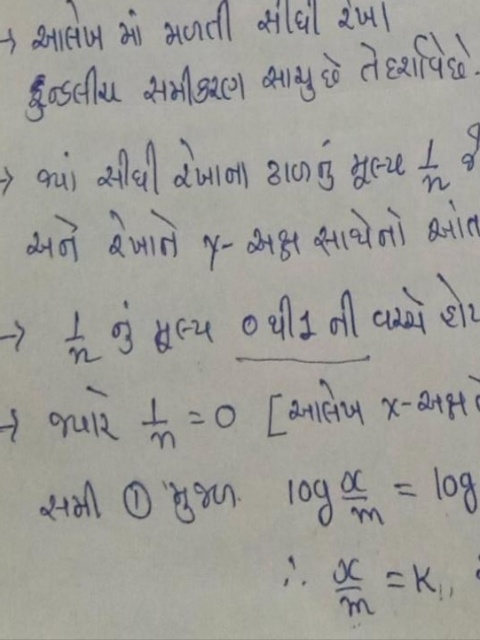 → આલેખ માં મળતી સીધી રેખા
ફ્રુન્ડલીય સમીકરણ સાચુ છે તે દર્શાવે છે.
→ જ્યાં સીધી રેખાના ઢાળનું મૂલ્ય 1/n છે
અને રેખાને y- અક્ષ સાથેનો આંત
→ 1/n નું મૂલ્ય 0 થી 1 ની વચ્ચે હોય
→ જ્યારે 1/n = 0 [આલેખ x-અક્ષને
સમી ① મુજબ log x/m = log
∴ x/m = K,